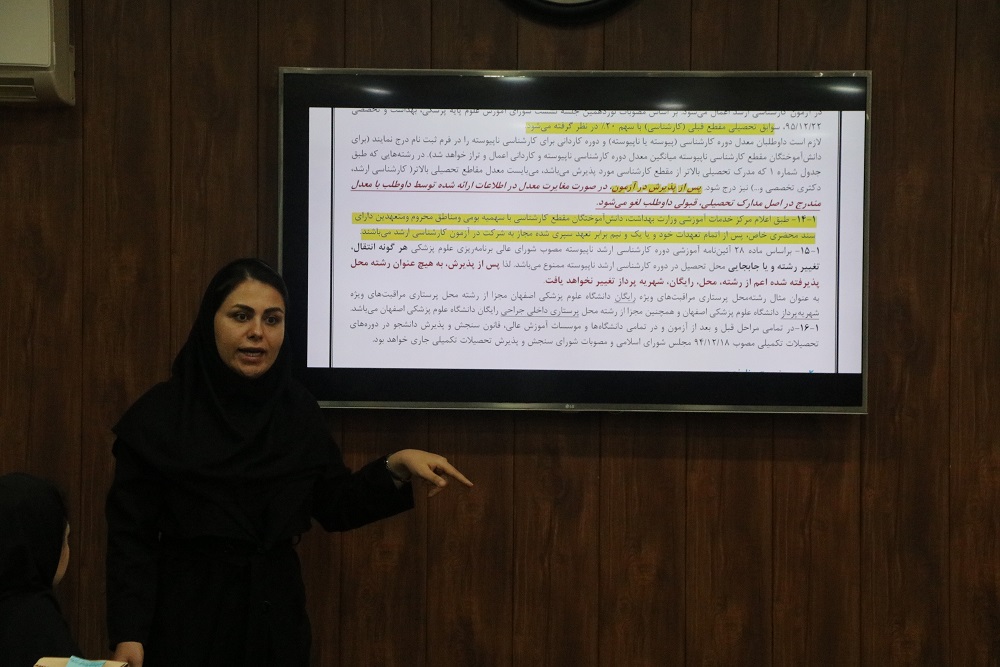 در آزمون کارشناسی ارشد اعمال می‌شود. بر اساس مصوبات نوزدهمین جلسه شورای آموزش علوم پایه پزشکی، بهداشت و تخصصی
۹۵/۱۲/۲۲، سوابق تحصیلی مقطع قبلی (کارشناسی) با سهم ۲۰٪ در نظر گرفته می‌شود.
لازم است داوطلبان معدل دوره کارشناسی (پیوسته یا ناپیوسته) و دوره کاردانی برای کارشناسی ناپیوسته را در فرم ثبت نام درج نمایند (برای
دانش‌آموختگان مقطع کارشناسی ناپیوسته میانگین معدل دوره کارشناسی ناپیوسته و کاردانی اعمال و تراز خواهد شد). در رشته‌هایی که طبق
جدول شماره ۱ که مدرک تحصیلی بالاتر از مقطع کارشناسی مورد پذیرش می‌باشد، می‌بایست معدل مقاطع تحصیلی بالاتر( کارشناسی ارشد،
دکتری تخصصی و..) نیز درج شود. پس از پذیرش در آزمون، در صورت مغایرت معدل در اطلاعات ارائه شده توسط داوطلب با معدل
مندرج در اصل مدارک تحصیلی، قبولی داوطلب لغو می‌شود.
۱-۱۴- طبق اعلام مرکز خدمات آموزشی وزارت بهداشت، دانش‌آموختگان مقطع کارشناسی با سهمیه بومی ومناطق محروم ومتعهدین دارای
سند محضری خاص، پس از اتمام تعهدات خود و یا یک و نیم برابر تعهد سپری شده مجاز به شرکت در آزمون کارشناسی ارشد می‌باشند.
۱-۱۵- براساس ماده ۲۸ آئین‌نامه آموزشی دوره کارشناسی ارشد ناپیوسته مصوب شورای عالی برنامه‌ریزی علوم پزشکی هر گونه انتقال،
تغییر رشته و یا جابجایی محل تحصیل در دوره کارشناسی ارشد ناپیوسته ممنوع می‌باشد. لذا پس از پذیرش، به هیچ عنوان رشته محل
پذیرفته شده اعم از رشته، محل، رایگان، شهریه پرداز تغییر نخواهد یافت
به عنوان مثال رشته‌محل پرستاری مراقبت‌های ویژه رایگان دانشگاه علوم پزشکی اصفهان مجزا از رشته محل پرستاری مراقبت‌های ویژه
شهریه‌پرداز دانشگاه علوم پزشکی اصفهان و همچنین مجزا از رشته محل پرستاری داخلی جراحی رایگان دانشگاه علوم پزشکی اصفهان می‌باشد.
۱-۱۶-در تمامی مراحل قبل و بعد از آزمون و در تمامی دانشگاه‌ها و موسسات آموزش عالی، قانون سنجش و پذیرش دانشجو در دوره‌های
تحصیلات تکمیلی مصوب ۹۴/۱۲/۱۸ مجلس شورای اسلامی و مصوبات شورای سنجش و پذیرش تحصیلات تکمیلی جاری خواهد بود.
LG